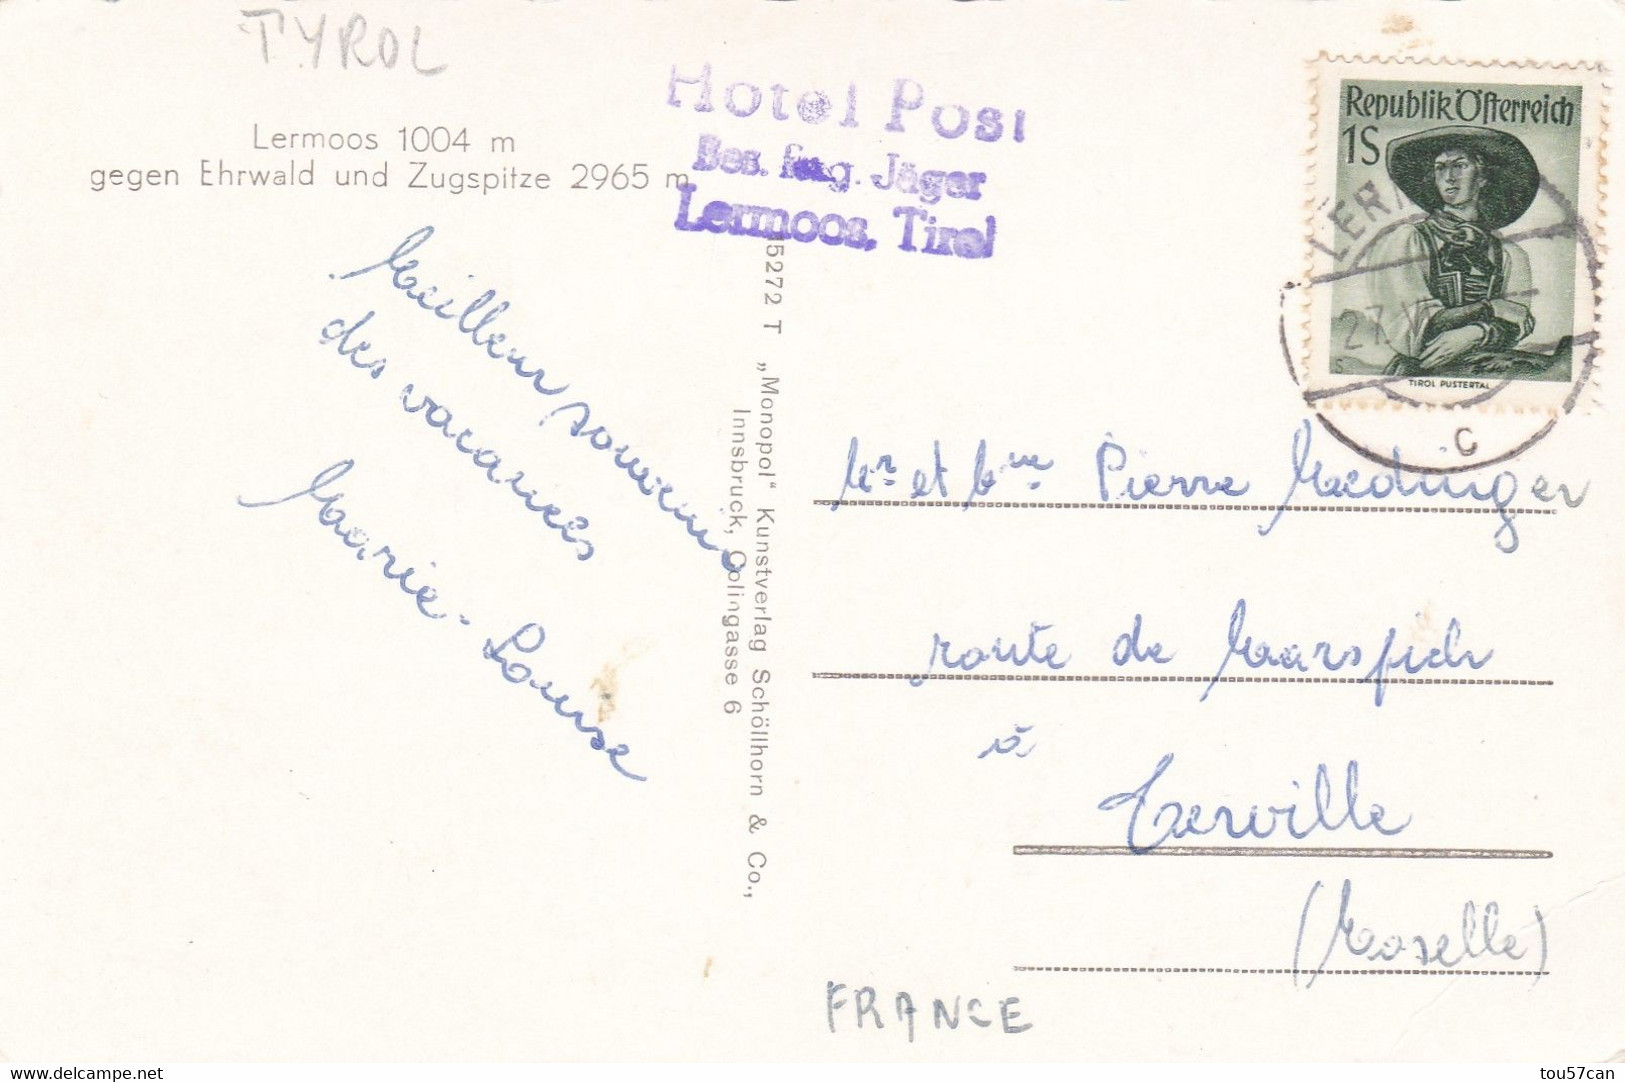 TYROL
Lermoos 1004 m
gegen Ehrwald und Zugspitze 2965 m
Hotel Post
Bes. Jäger
Lermoos, Tirol
Republik Österreich
1S
TIROL PUSTERTAL
LER
27.V
C
Meilleur souvenir
des vacances
Marie-Louise
5272 T „Monopol“ Kunstverlag Schöllhorn & Co.,
Innsbruck, Colingasse 6
Mr et Mme Pierre Maedinger
route de Marspich
à
Terville
(Moselle)
FRANCE
www.delcampe.net
tou57can